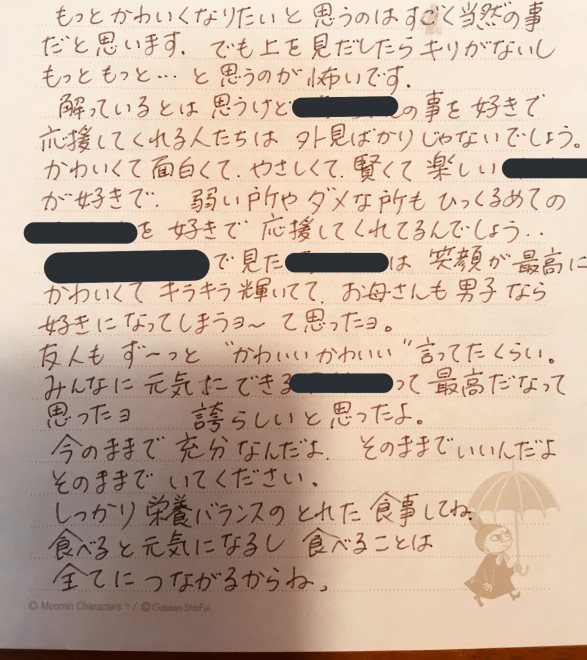 もっとかわいくなりたいと思うのはすごく当然の事
だと思います。でも上を見だしたらキリがないし
もっともっと…と思うのが怖いです。
解っているとは思うけど の事を好きで
応援してくれる人たちは外見ばかりじゃないでしょう。
かわいくて面白くて、やさしくて、賢くて楽しい
が好きで、弱い所やダメな所もひっくるめての
を好きで応援してくれてるんでしょう‥
で見た は笑顔が最高に
かわいくてキラキラ輝いてて、お母さんも男子なら
好きになってしまうョ〜て思ったョ。
友人もず〜っと"かわいいかわいい"言ってたくらい。
みんなに元気までできる って最高だなって
思ったョ 誇らしいと思ったよ。
今のままで充分なんだよ、そのままでいいんだよ
そのままでいてください。
しっかり栄養バランスのとれた食事してね、
食べると元気になるし食べることは
全てにつながるからね。
© Moomin Characters ™ / © Gakken Sta:Ful